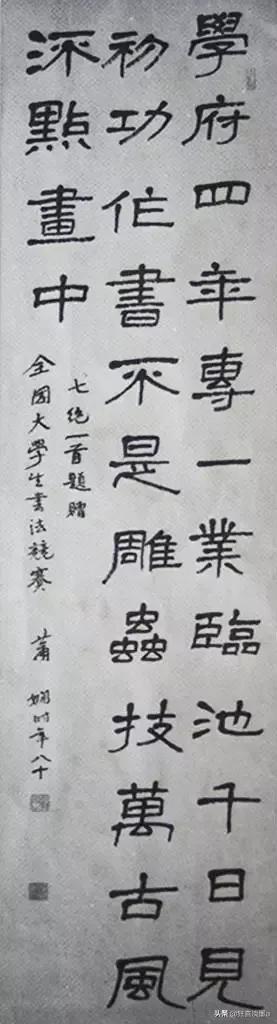 學府四年專一業臨池千日見
初功作書不是雕蟲技萬古風
流點畫中
七绝一首題贈
全國大學生書法競賽 蕭嫻时年八十
头条